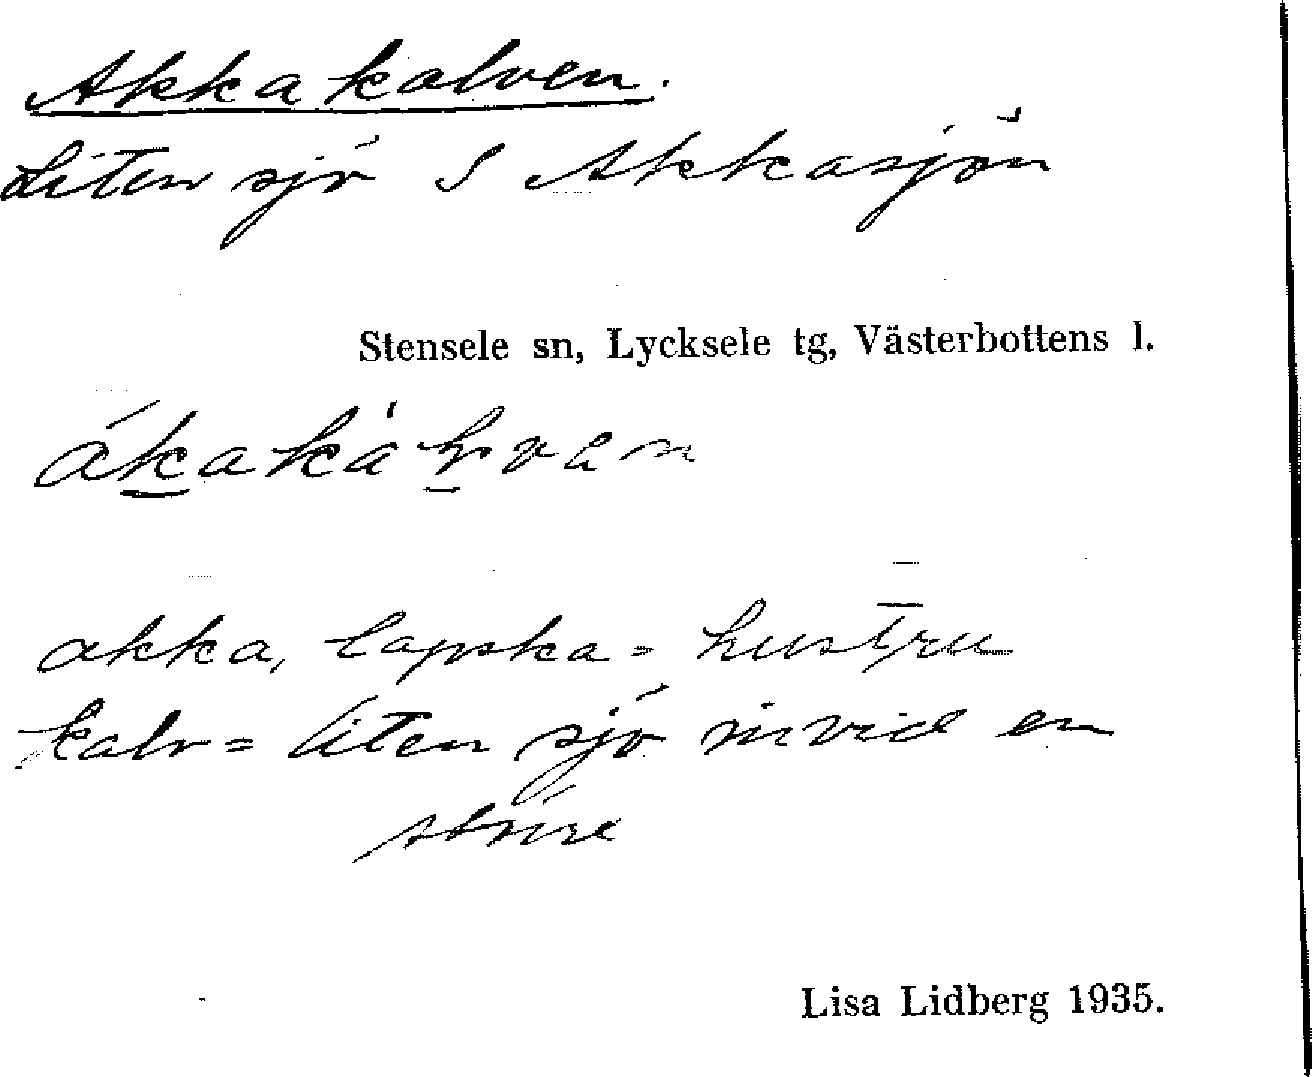 Akkakalven.
Liten sjö S Akkasjön
Stensele sn, Lycksele tg, Västerbottens l.
akka, lapska = hustru
kalv = liten sjö invid en
större
Lisa Lidberg 1935.